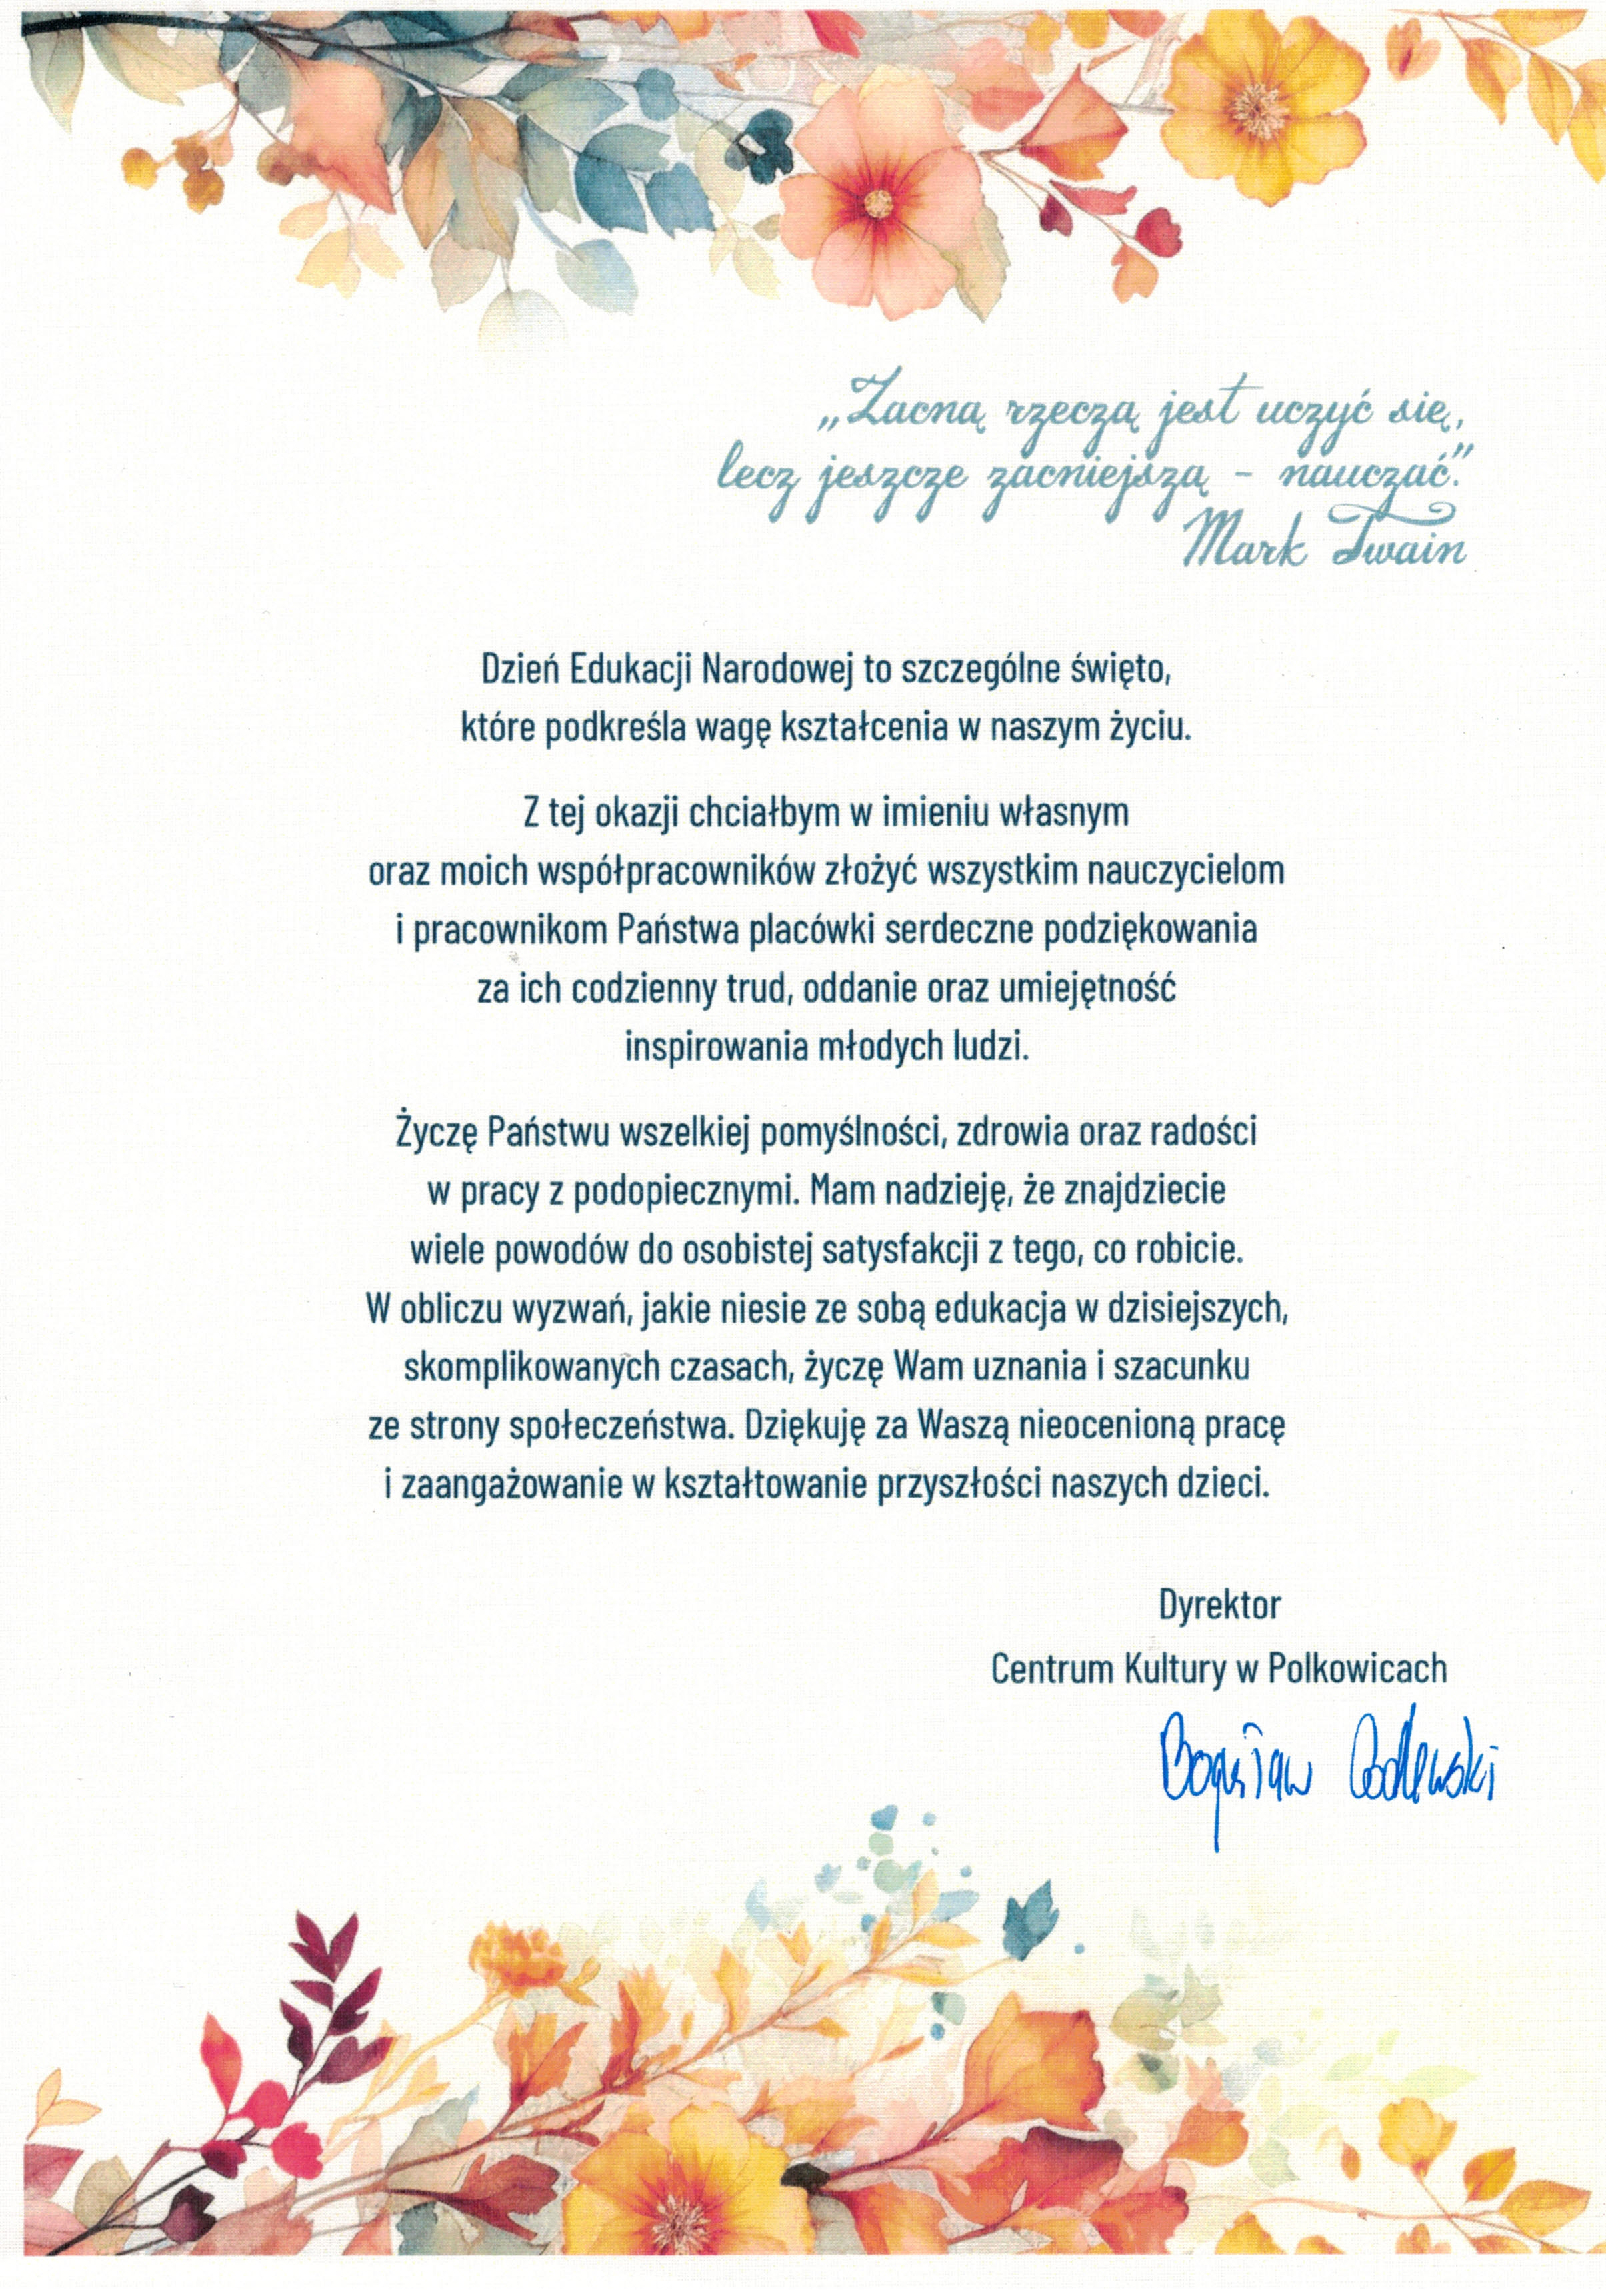 „Zacną rzeczą jest uczyć się,
lecz jeszcze zacniejszą - nauczać."
Mark Twain
Dzień Edukacji Narodowej to szczególne święto,
które podkreśla wagę kształcenia w naszym życiu.
Z tej okazji chciałbym w imieniu własnym
oraz moich współpracowników złożyć wszystkim nauczycielom
i pracownikom Państwa placówki serdeczne podziękowania
za ich codzienny trud, oddanie oraz umiejętność
inspirowania młodych ludzi.
Życzę Państwu wszelkiej pomyślności, zdrowia oraz radości
w pracy z podopiecznymi. Mam nadzieję, że znajdziecie
wiele powodów do osobistej satysfakcji z tego, co robicie.
W obliczu wyzwań, jakie niesie ze sobą edukacja w dzisiejszych,
skomplikowanych czasach, życzę Wam uznania i szacunku
ze strony społeczeństwa. Dziękuję za Waszą nieocenioną pracę
i zaangażowanie w kształtowanie przyszłości naszych dzieci.
Dyrektor
Centrum Kultury w Polkowicach